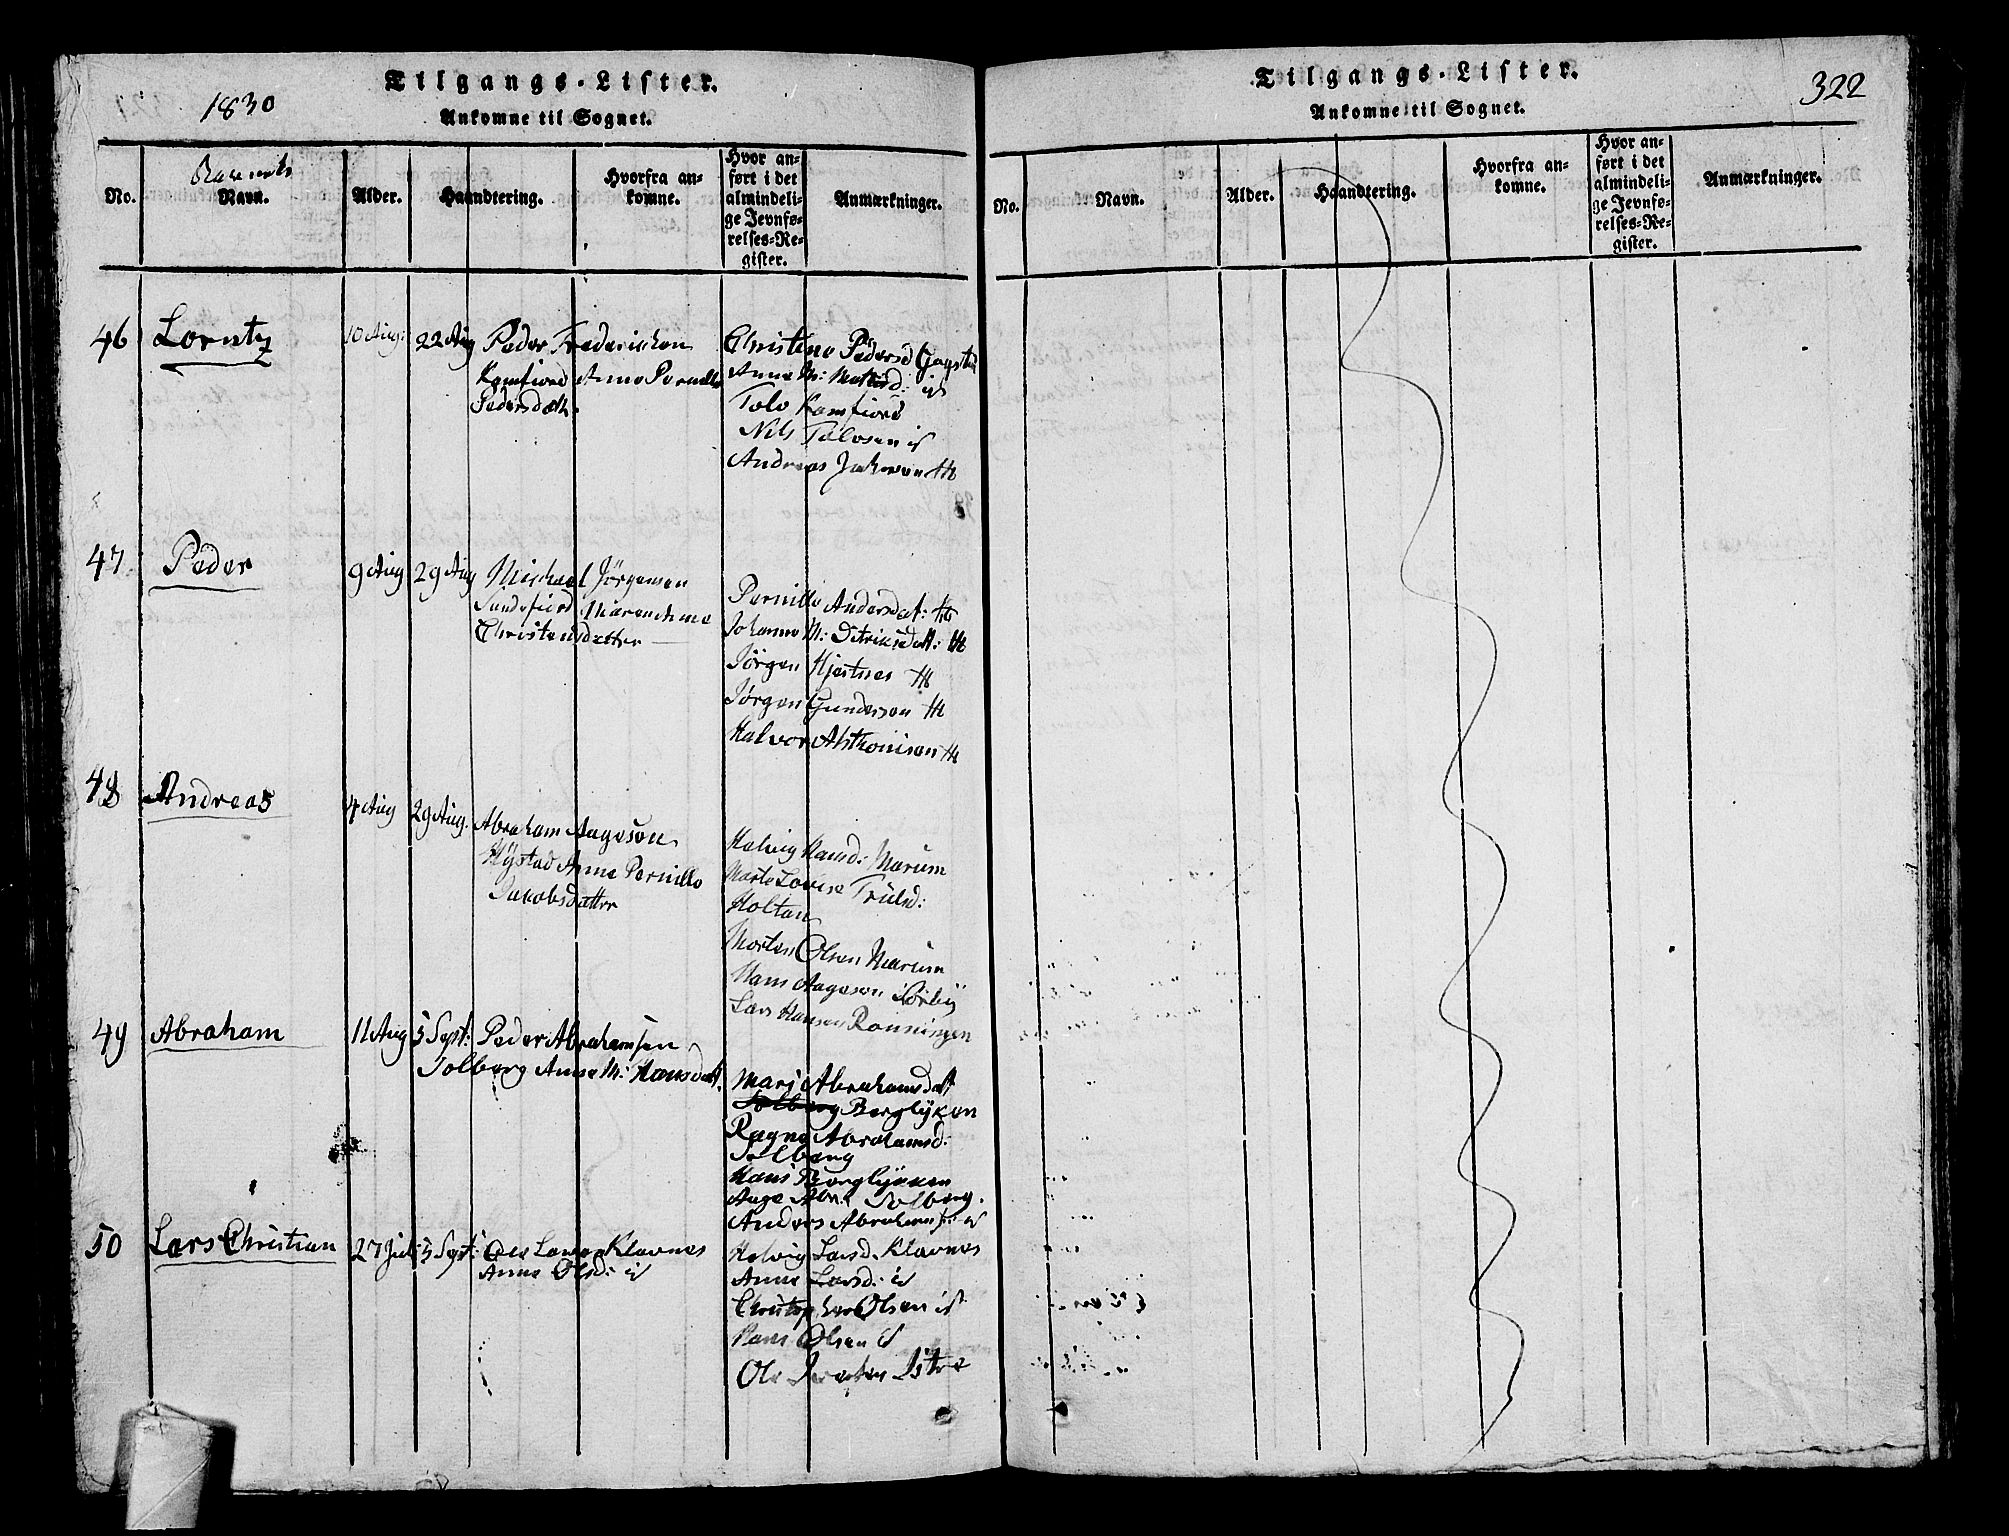 Tilgangs-Lister.
1830
Ankomne til Sognet.
Barnets
No.
Navn.
Alder.
Haandtering.
Hvorfra an-
komne.
Hvor an-
ført i det
almindeli-
ge Jevnfø-
relses-Re-
gister.
Anmærkninger.
46
Lorntz
10 Aug:
22 Aug
Peder Frederichsen
Kamfiord Anne Pernille
Pedersdatt.
Christine Pedersd
Anne M: Mathisd: id
Tolv Kamfiord
Nils Tolvsen id
Andreas Jakobsen H
47
Peder
9 Aug
29 Aug
Michael Jörgensen
Sandefiord Maren
Christensdatter
Pernille Andersdat: H
Johanne M: Ditriksdatt: H
Jörgen Hjertnes H
Jörgen Gundersen H
Halvor Anthonisen H
48
Andreas
4 Aug
29 Aug.
Abraham Aageson
Hÿstad Anne Pernille
Jakobsdatter
Helvig Hansd: Marum
Marte Lovise Trulsd:
Holtan
Morten Olsen Marum
Hans Aageson Sörbÿ
Lars Hansen Rönningen
49
Abraham
11 Aug
5 Sept:
Peder Abrahamsen
Solberg Anne M: Hansdatt.
Mari Abrahamsdatt
Solberg Berglÿkken
Ragne Abrahamsd:
Solberg
Hans Berglÿkken
Aage Abr: Solberg.
Anders Abrahams: id
50
Lars Christian
27 Juli
5 Sept:
Ole Larsen Klavnes
Anne Olsd: id
Helvig Larsd. Klavnes
Anne Larsd: id
Christopher Olsen id
Hans Olsen id
Ole Istre
Tilgangs-Lister.
322
Ankomne til Sognet.
No.
Navn.
Alder.
Haandtering.
Hvorfra an-
komne.
Hvor an-
ført i det
almindeli-
ge Jevnfø-
relses-Re-
gister.
Anmærkninger.